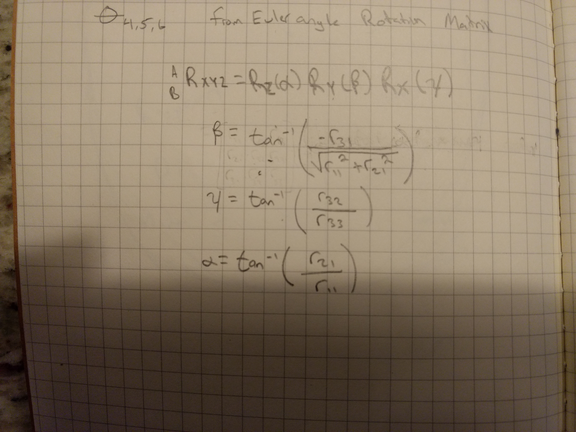 Θ4,5,6 from Euler angle Rotation Matrix
A B RXYZ = RZ(α) RY(β) RX(γ)
β = tan⁻¹(-r31 / √(r11² + r21²))
γ = tan⁻¹(r32 / r33)
α = tan⁻¹(r21 / r11)